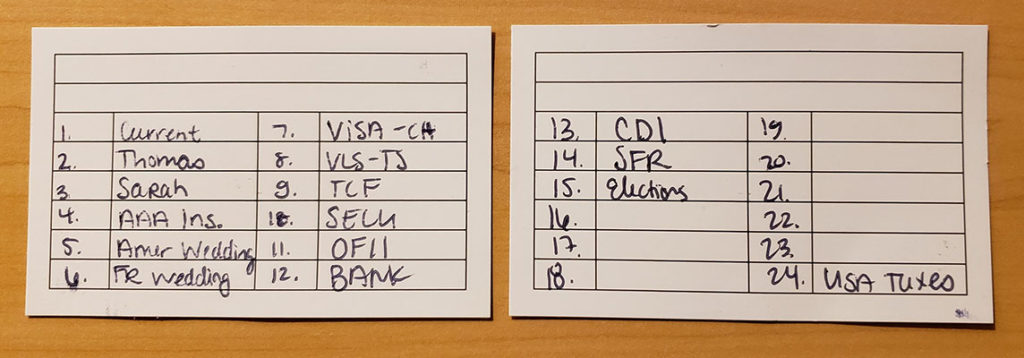 1. Current 7. VISA-CH
2. Thomas 8. VLS-TS
3 Sarah 9. TCF
4. AAA Ins. 10. SECU
5. Amer Wedding 11. OFII
6. FR Wedding 12. BANK
13. CDI 19.
14. SFR 20.
15. Elections 21.
16. 22.
17. 23.
18. 24. USA Taxes